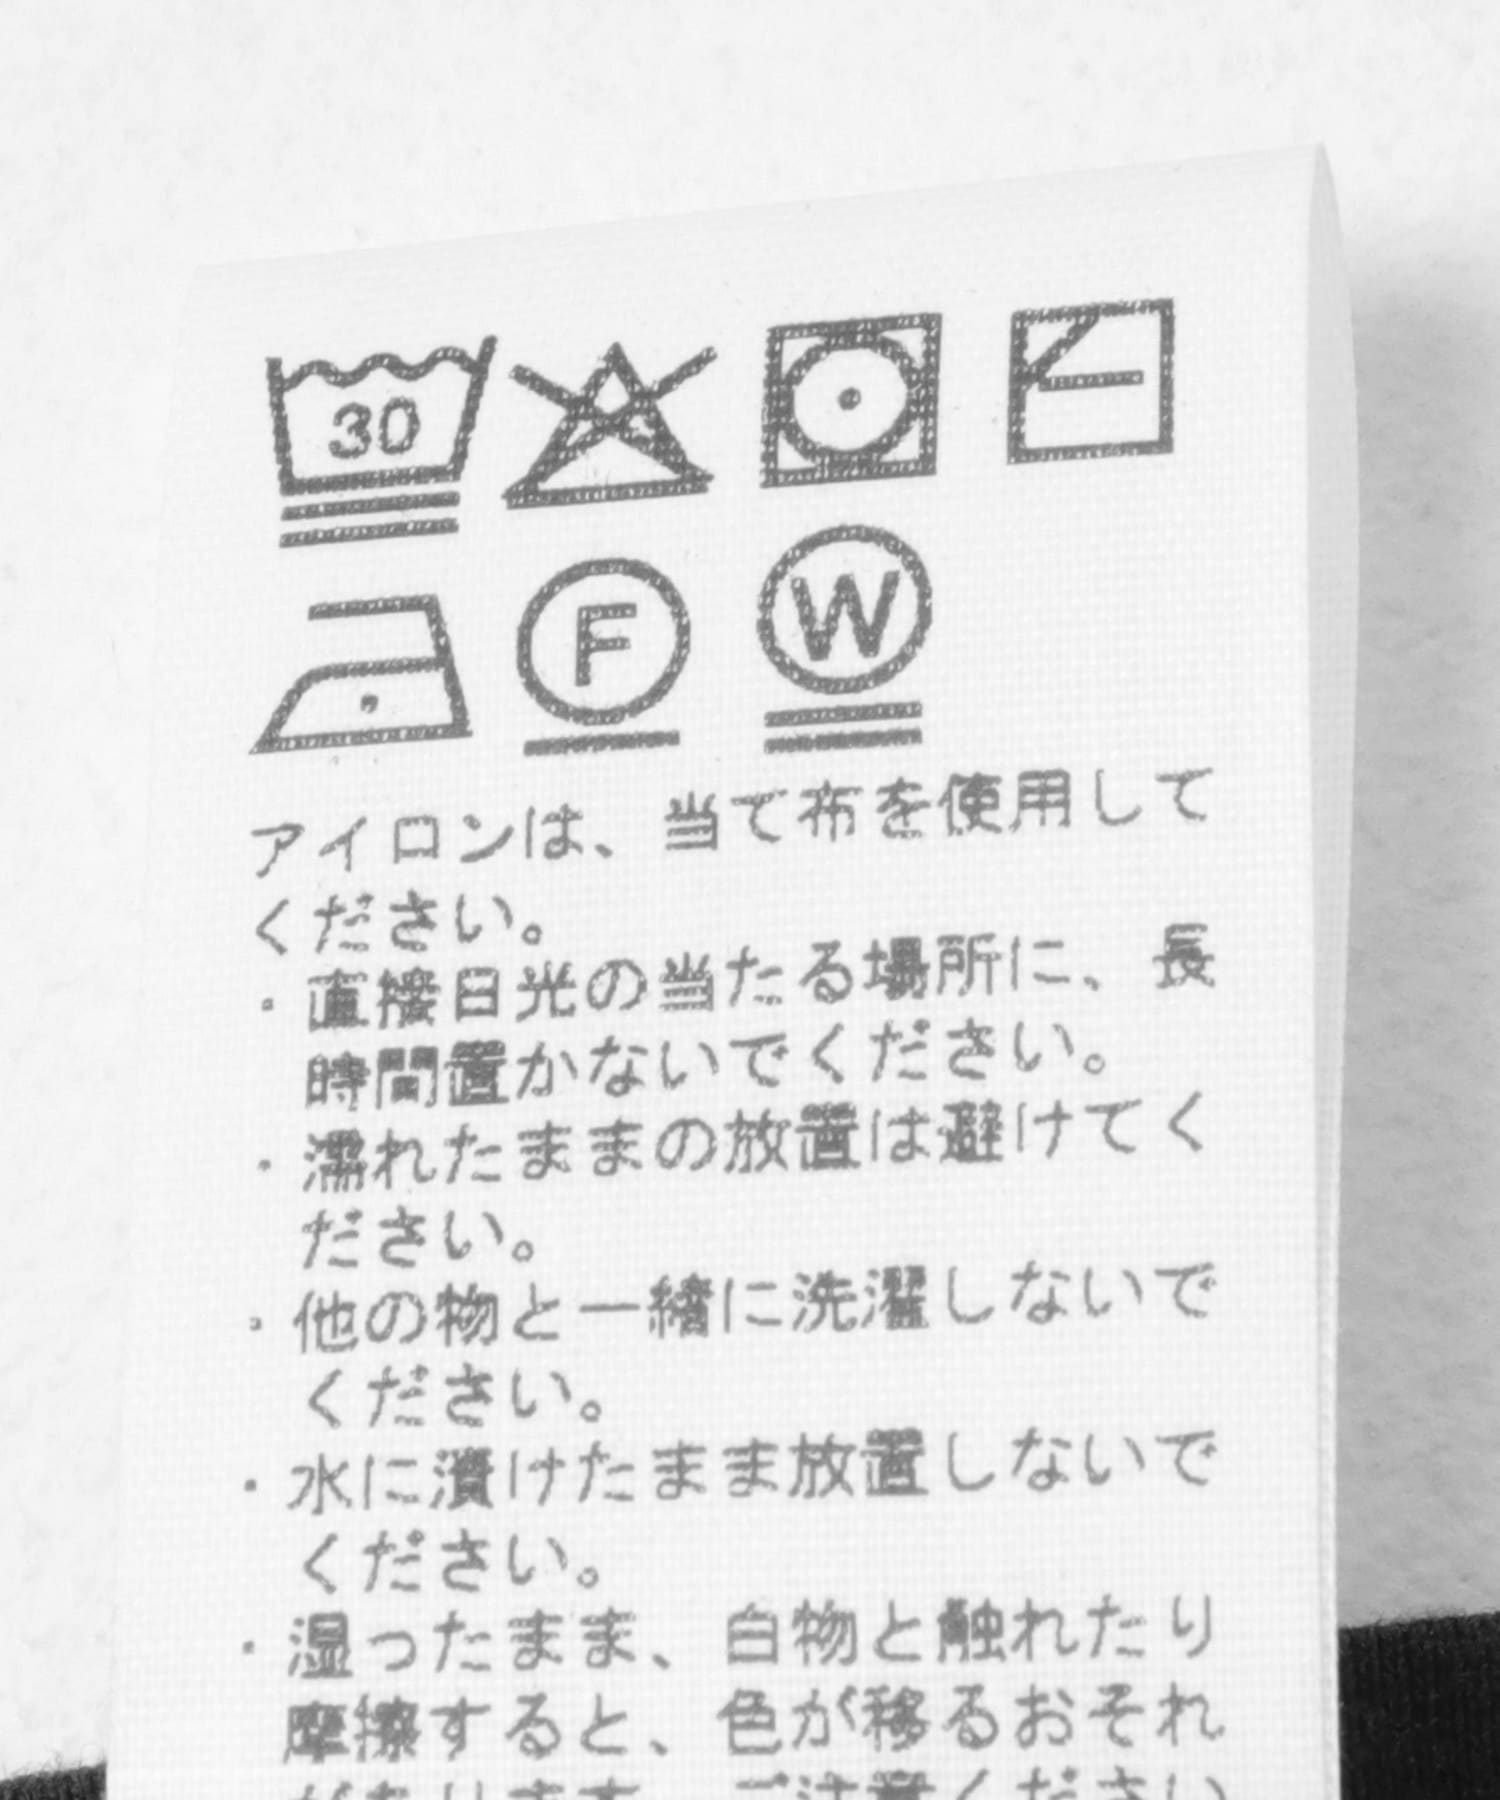 30
F
W
アイロンは、当て布を使用して
ください。
・直接日光の当たる場所に、長
時間置かないでください。
・濡れたままの放置は避けてく
ださい。
・他の物と一緒に洗濯しないで
ください。
・水に漬けたまま放置しないで
ください。
・湿ったまま、白物と触れたり
摩擦すると、色が移るおそれ
があります。ご注意ください